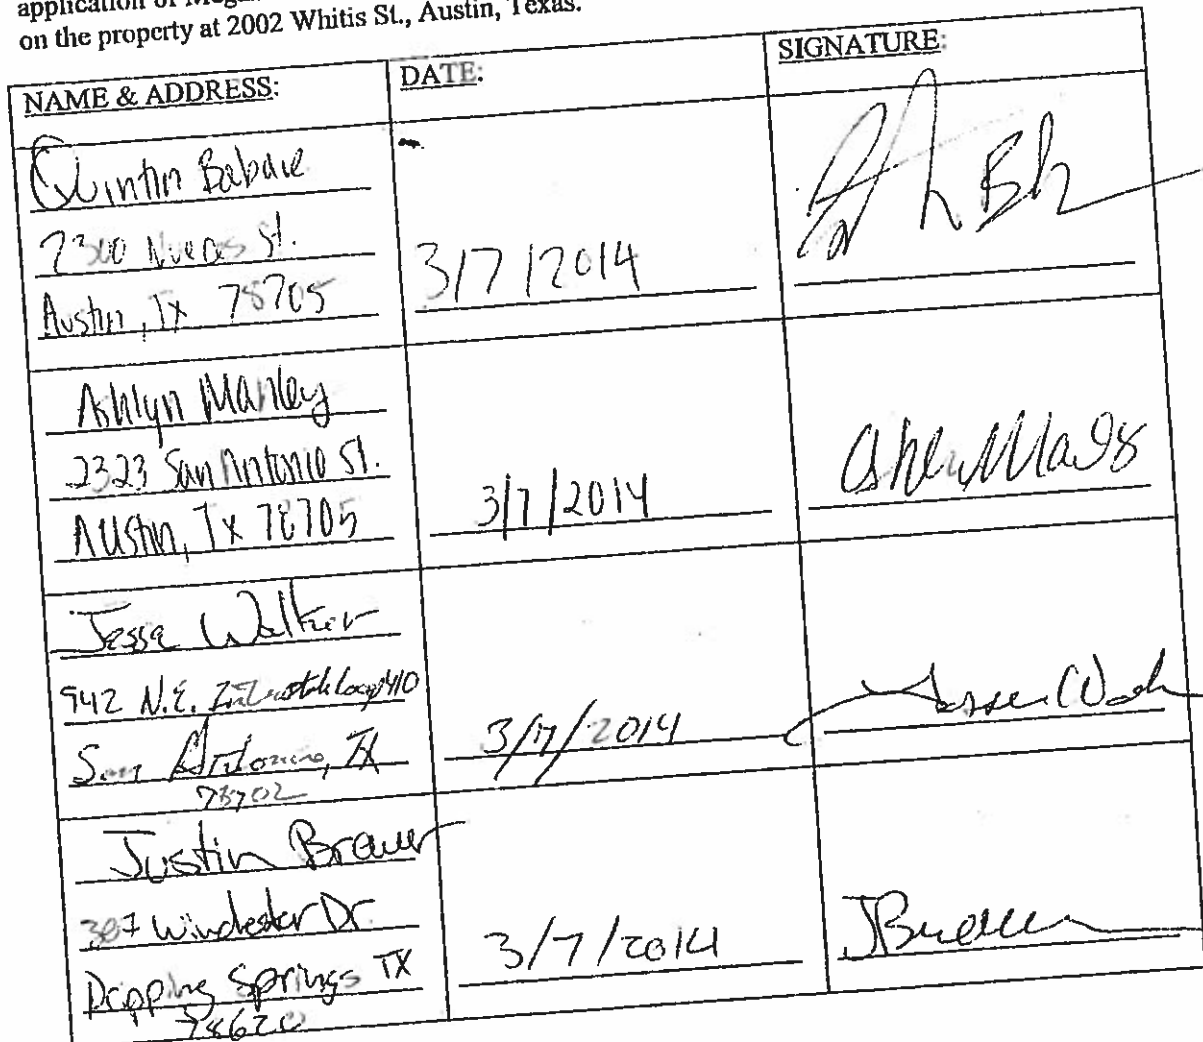 application of
on the property at 2002 Whitis St., Austin, Texas.
NAME & ADDRESS: DATE: SIGNATURE:
Quintin
2300 Nueces St.
Austin, Tx 78705
3/7/2014
Ashlyn Manley
2323 San Antonio St.
Austin, Tx 78705
3/7/2014
Jesse Walker
942 N.E. Interstate Loop 410
San Antonio, TX
78702
3/7/2014
Justin Brauer
307 Winchester Dr.
Dripping Springs TX
78620
3/7/2014